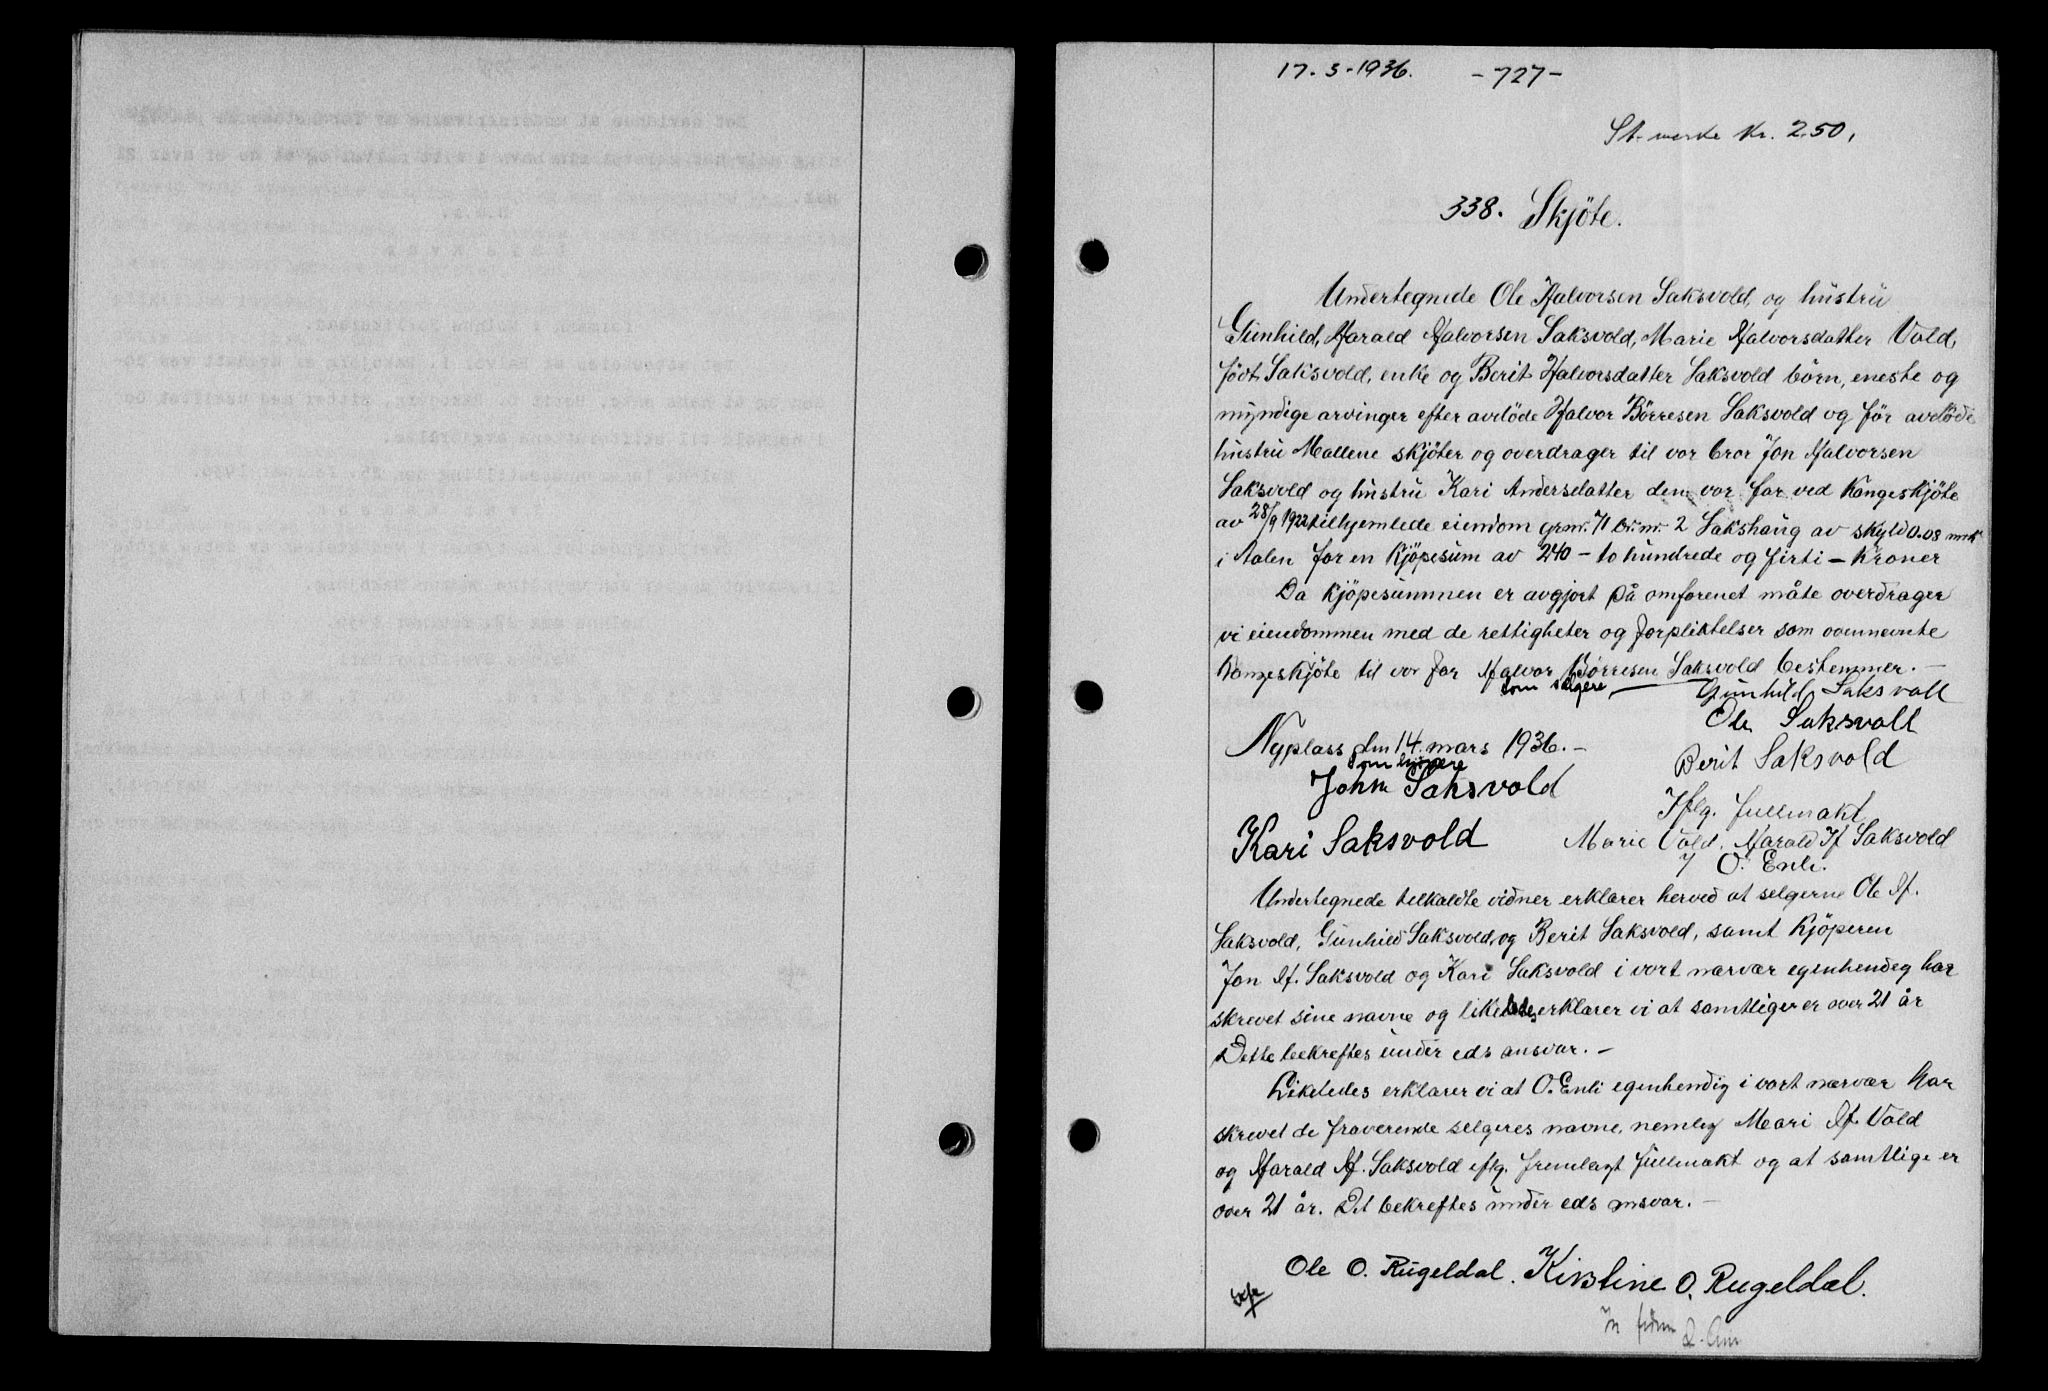 17.3-1936. -727-
St. merke kr. 2.50,
338. Skjöte.
Undertegnede Ole Halvorsen Saksvold, og hustru
Gunhild, Harald Halvorsen Saksvold, Marie Halvorsdatter Vold,
født Saksvold, enke og Berit Halvorsdatter Saksvold börn, eneste og
myndige arvinger efter avdöde Halvor Börresen Saksvold og för avdöde
hustru Mallene skjöter og overdrager til vor bror Jon Halvorsen
Saksvold og hustru Kari Andersdatter den vor far ved Kongeskjöte
av 28/9 1922 tilhjemlede eiendom grnr. 71 br.nr. 2 Sakshaug av skyld 0.08 mrk
i Aalen for en kjöpesum av 240 - to hundrede og firti - kroner
Da kjöpesummen er avgjort på omforenet måte overdrager
vi eiendommen med de rettigheter og forpliktelser som ovennevnte
Kongeskjöte til vor far Halvor Börresen Saksvold bestemmer. -
som selgere
Gunhild Saksvoll
Ole Saksvoll
Nyplass den 14. mars 1936. -
Berit Saksvold
som kjöpere
John Saksvold
Iflg. fullmakt
Kari Saksvold
Marie Vold. Harald H Saksvold
O. Enli.
Undertegnede tilkaldte vidner erklærer herved at selgerne Ole H.
Saksvold, Gunhild Saksvold, og Berit Saksvold, samt kjöperen
Jon H. Saksvold og Kari Saksvold i vort nærvær egenhendeg har
skrevet sine navne og likeledes erklærer vi at samtlige er over 21 år
Dette bekreftes under eds ansvar. -
Likeledes erklærer vi at O. Enli egenhendig i vort nærvær har
skrevet de fraverende selgeres navne, nemlig Mari H. Vold
og Harald H. Saksvold iflg. fremlagt fullmakt og at samtlige er
over 21 år. Det bekreftes under eds ansvar. -
Ole O. Rugeldal. Kirstine O. Rugeldal.